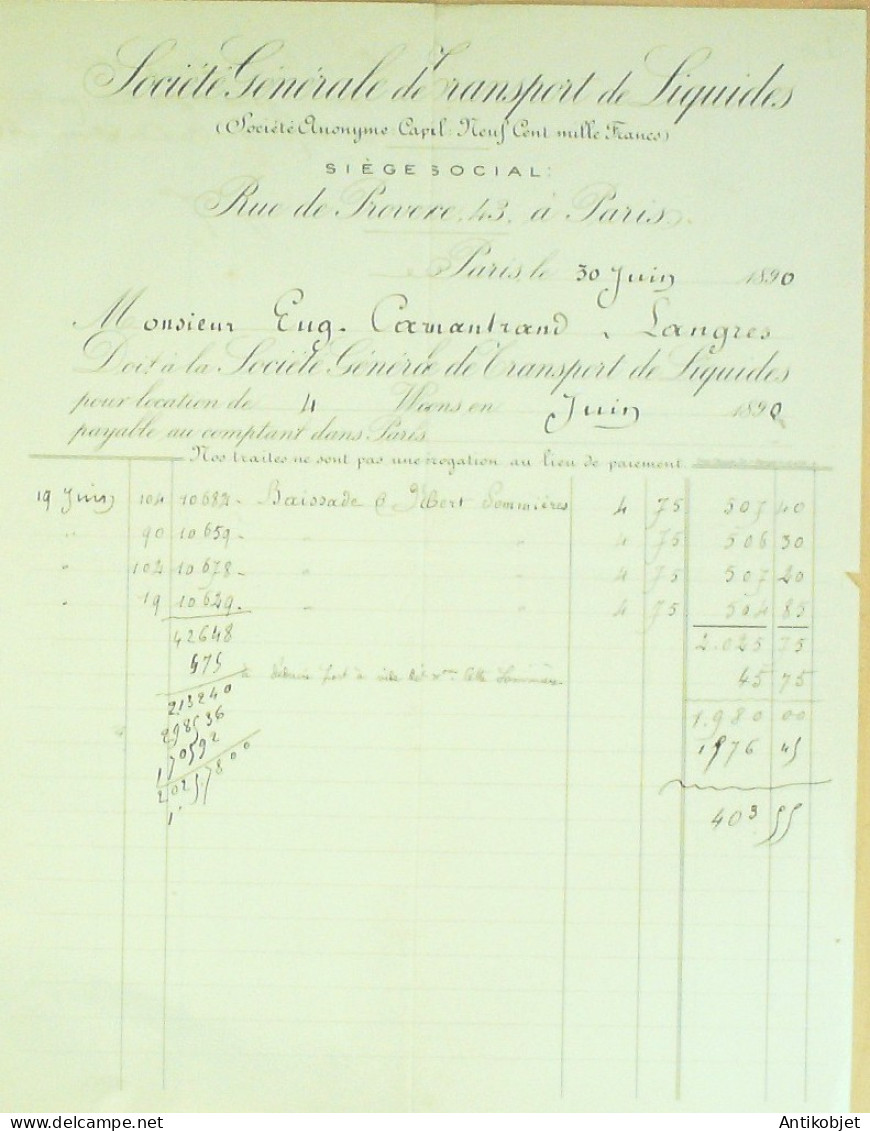 Société Générale de Transport de Liquides
(Société Anonyme: Capil: Neuf Cent mille Francs)
SIÈGE SOCIAL:
Rue de Provece, 43, à Paris.
Paris, le 30 Juin 1890
Monsieur Eug. Carnantrand, Langres
Doit à la Société Générale de Transport de Liquides
pour location de 4 Wions en Juin 1890
payable au comptant dans Paris
Nos traites ne sont pas une rogation au lieu de paiement
19 Juin 104 10682 - Baissade & Sommières 4 75 507 40
" 90 10659 - " " 4 75 506 30
" 104 10678 - " " 4 75 507 20
" 19 10629 - " " 4 75 504 85
42648 2.025 75
475 à 45 75
213240 1.980 00
298536 1576 45
170592
20257800 403 55
1
Antikobjet